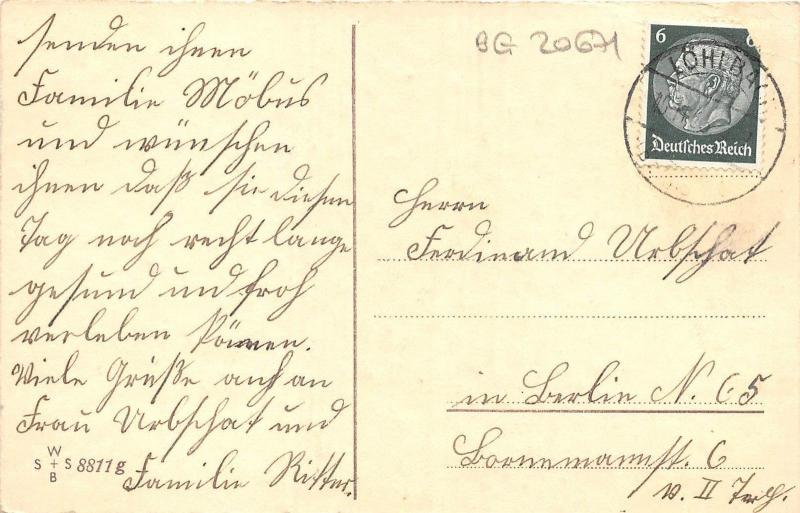 senden ihnen
Familie Möbus
und wünschen
ihnen daß sie diesen
Tag noch recht lange
gesund und froh
verleben können.
Viele Grüße auch an
Frau Urbschat und
Familie Ritter.
W
S + S 8811g
B
BG 20671
6 6
LÖHLBACH
Deutsches Reich
Herrn
Ferdinand Urbschat
in Berlin N. 65
Bornemannst. 6
v. II